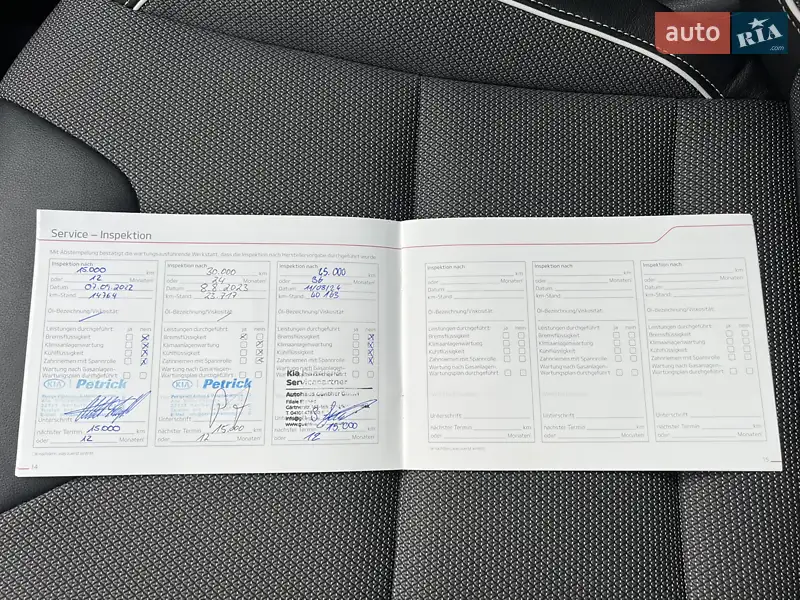 auto RIA .com
Service – Inspektion
Mit Abstempelung bestätigt die wartungsausführende Werkstatt, dass die Inspektion nach Herstellervorgabe durchgeführt wurde.
Inspektion nach:
15.000 km
oder 12 Monaten
Datum
km-Stand 14764
Öl-Bezeichnung/Viskosität:
Leistungen durchgeführt: ja nein
Bremsflüssigkeit
Klimaanlagenwartung
Kühlflüssigkeit
Zahnriemen mit Spannrolle
Wartung nach Gasanlagen-
Wartungsplan durchgeführt
KIA Petrick
Unterschrift
nächster Termin 15000 km
oder 12 Monaten
14
Inspektion nach:
30.000 km
oder 24 Monaten
Datum 8.8.2023
km-Stand 23.717
Öl-Bezeichnung/Viskosität:
Leistungen durchgeführt: ja nein
Bremsflüssigkeit
Klimaanlagenwartung
Kühlflüssigkeit
Zahnriemen mit Spannrolle
Wartung nach Gasanlagen-
Wartungsplan durchgeführt
KIA Petrick
Unterschrift
nächster Termin 15.000 km
oder 12 Monaten
Inspektion nach:
45.000 km
oder 36 Monaten
Datum 11/03/24
km-Stand 40 163
Öl-Bezeichnung/Viskosität:
Leistungen durchgeführt: ja nein
Bremsflüssigkeit
Klimaanlagenwartung
Kühlflüssigkeit
Zahnriemen mit Spannrolle
Kia
Servicepartner
Autohaus Günther GmbH
nächster Termin 15.000 km
oder 12 Monaten
Inspektion nach:
km
oder Monaten
Datum
km-Stand
Öl-Bezeichnung/Viskosität:
Leistungen durchgeführt: ja nein
Bremsflüssigkeit
Klimaanlagenwartung
Kühlflüssigkeit
Zahnriemen mit Spannrolle
Wartung nach Gasanlagen-
Wartungsplan durchgeführt
Unterschrift
nächster Termin km
oder Monaten
Inspektion nach:
km
oder Monaten
Datum
km-Stand
Öl-Bezeichnung/Viskosität:
Leistungen durchgeführt: ja nein
Bremsflüssigkeit
Klimaanlagenwartung
Kühlflüssigkeit
Zahnriemen mit Spannrolle
Wartung nach Gasanlagen-
Wartungsplan durchgeführt
Unterschrift
nächster Termin km
oder Monaten
Inspektion nach:
km
oder Monaten
Datum
km-Stand
Öl-Bezeichnung/Viskosität:
Leistungen durchgeführt: ja nein
Bremsflüssigkeit
Klimaanlagenwartung
Kühlflüssigkeit
Zahnriemen mit Spannrolle
Wartung nach Gasanlagen-
Wartungsplan durchgeführt
Unterschrift
nächster Termin km
oder Monaten
15